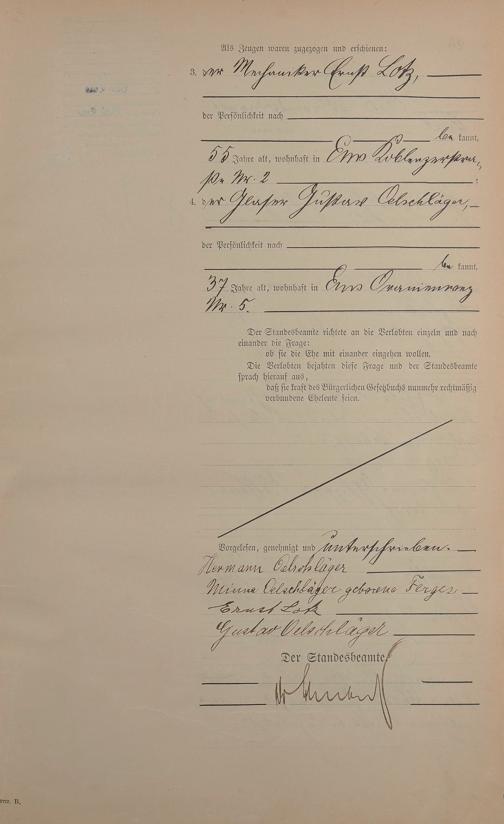 Als Zeugen waren zugezogen und erschienen:
3. der Mechaniker Ernst Lotz,
der Persönlichkeit nach
be kannt,
55 Jahre alt, wohnhaft in Ems Koblenzerstra-
ße Nr. 2 ;
4. der Glaser Gustav Oelschläger,
der Persönlichkeit nach
be kannt,
37 Jahre alt, wohnhaft in Ems Oranienweg
Nr. 5.
Der Standesbeamte richtete an die Verlobten einzeln und nach
einander die Frage:
ob sie die Ehe mit einander eingehen wollen.
Die Verlobten bejahten diese Frage und der Standesbeamte
sprach hierauf aus,
daß sie kraft des Bürgerlichen Gesetzbuchs nunmehr rechtmäßig
verbundene Eheleute seien.
Vorgelesen, genehmigt und unterschrieben.
Hermann Oelschläger
Minna Oelschläger geborene Ferges
Ernst Lotz
Gustav Oelschläger
Der Standesbeamte.
B.